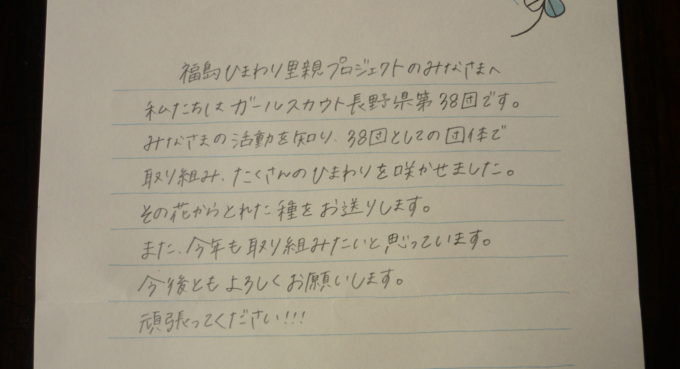 福島ひまわり里親プロジェクトのみなさまへ
私たちは ガールスカウト長野県第38団です。
みなさまの活動を知り、38団としての団体で
取り組み、たくさんのひまわりを咲かせました。
その花からとれた種をお送りします。
また、今年も取り組みたいと思っています。
今後ともよろしくお願いします。
頑張ってください!!!